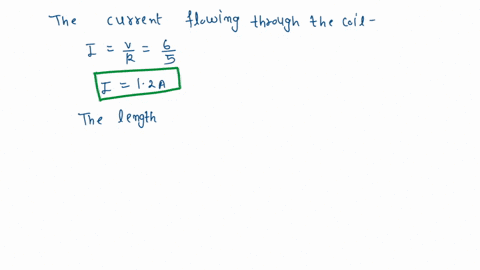 The current flowing through the coil-
I = V/R = 6/5
I = 1.2A
The length